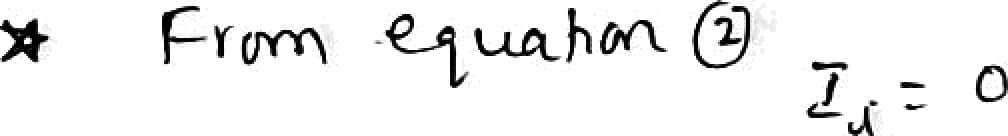 * From equation ②
I_i = 0